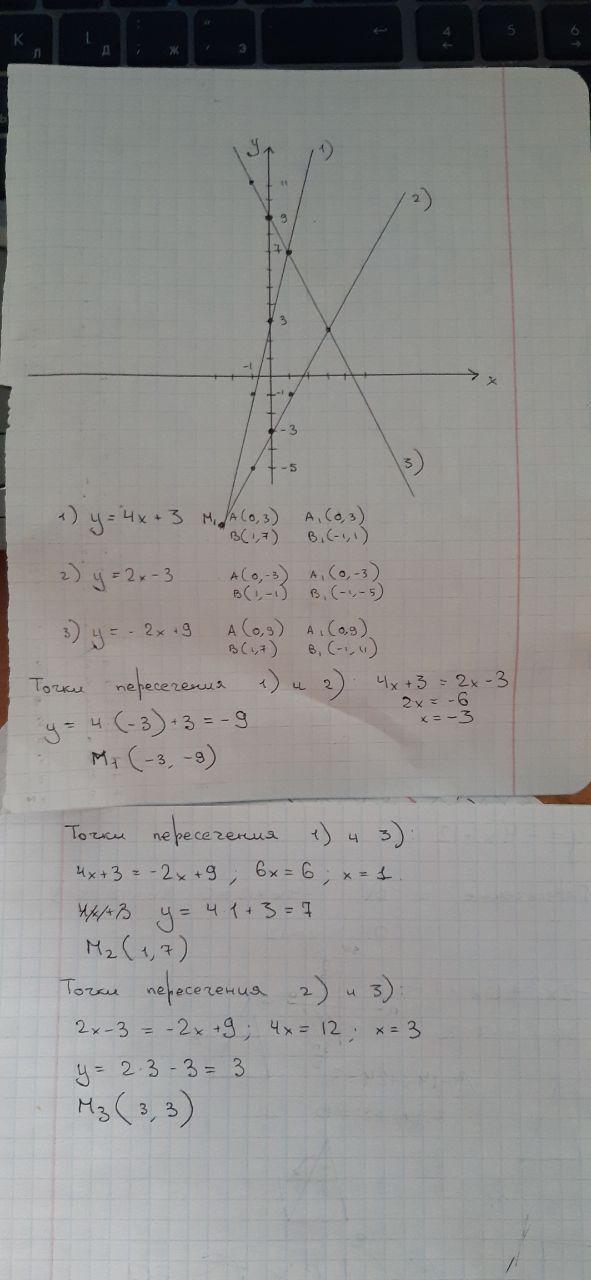 К Л
L Д
; Ж
' Э
←
4 ←
5
6 →
y 1)
11
2)
9
7
3
-1
x
-1
-3
3)
-5
1) y = 4x + 3 M₁ A(0,3) A₁(0,3)
B(1,7) B₁(-1,1)
2) y = 2x - 3 A(0,-3) A₁(0,-3)
B(1,-1) B₁(-1,-5)
3) y = - 2x + 9 A(0,9) A₁(0,9)
B(1,7) B₁(-1,11)
Точки пересечения 1) и 2): 4x+3 = 2x-3
2x = -6
x = -3
y = 4·(-3)+3 = -9
M₁(-3, -9)
Точки пересечения 1) и 3):
4x+3 = -2x+9 ; 6x = 6 ; x = 1
y = 4·1 + 3 = 7
M₂(1,7)
Точки пересечения 2) и 3):
2x-3 = -2x+9 ; 4x = 12 ; x = 3
y = 2·3 - 3 = 3
M₃(3, 3)